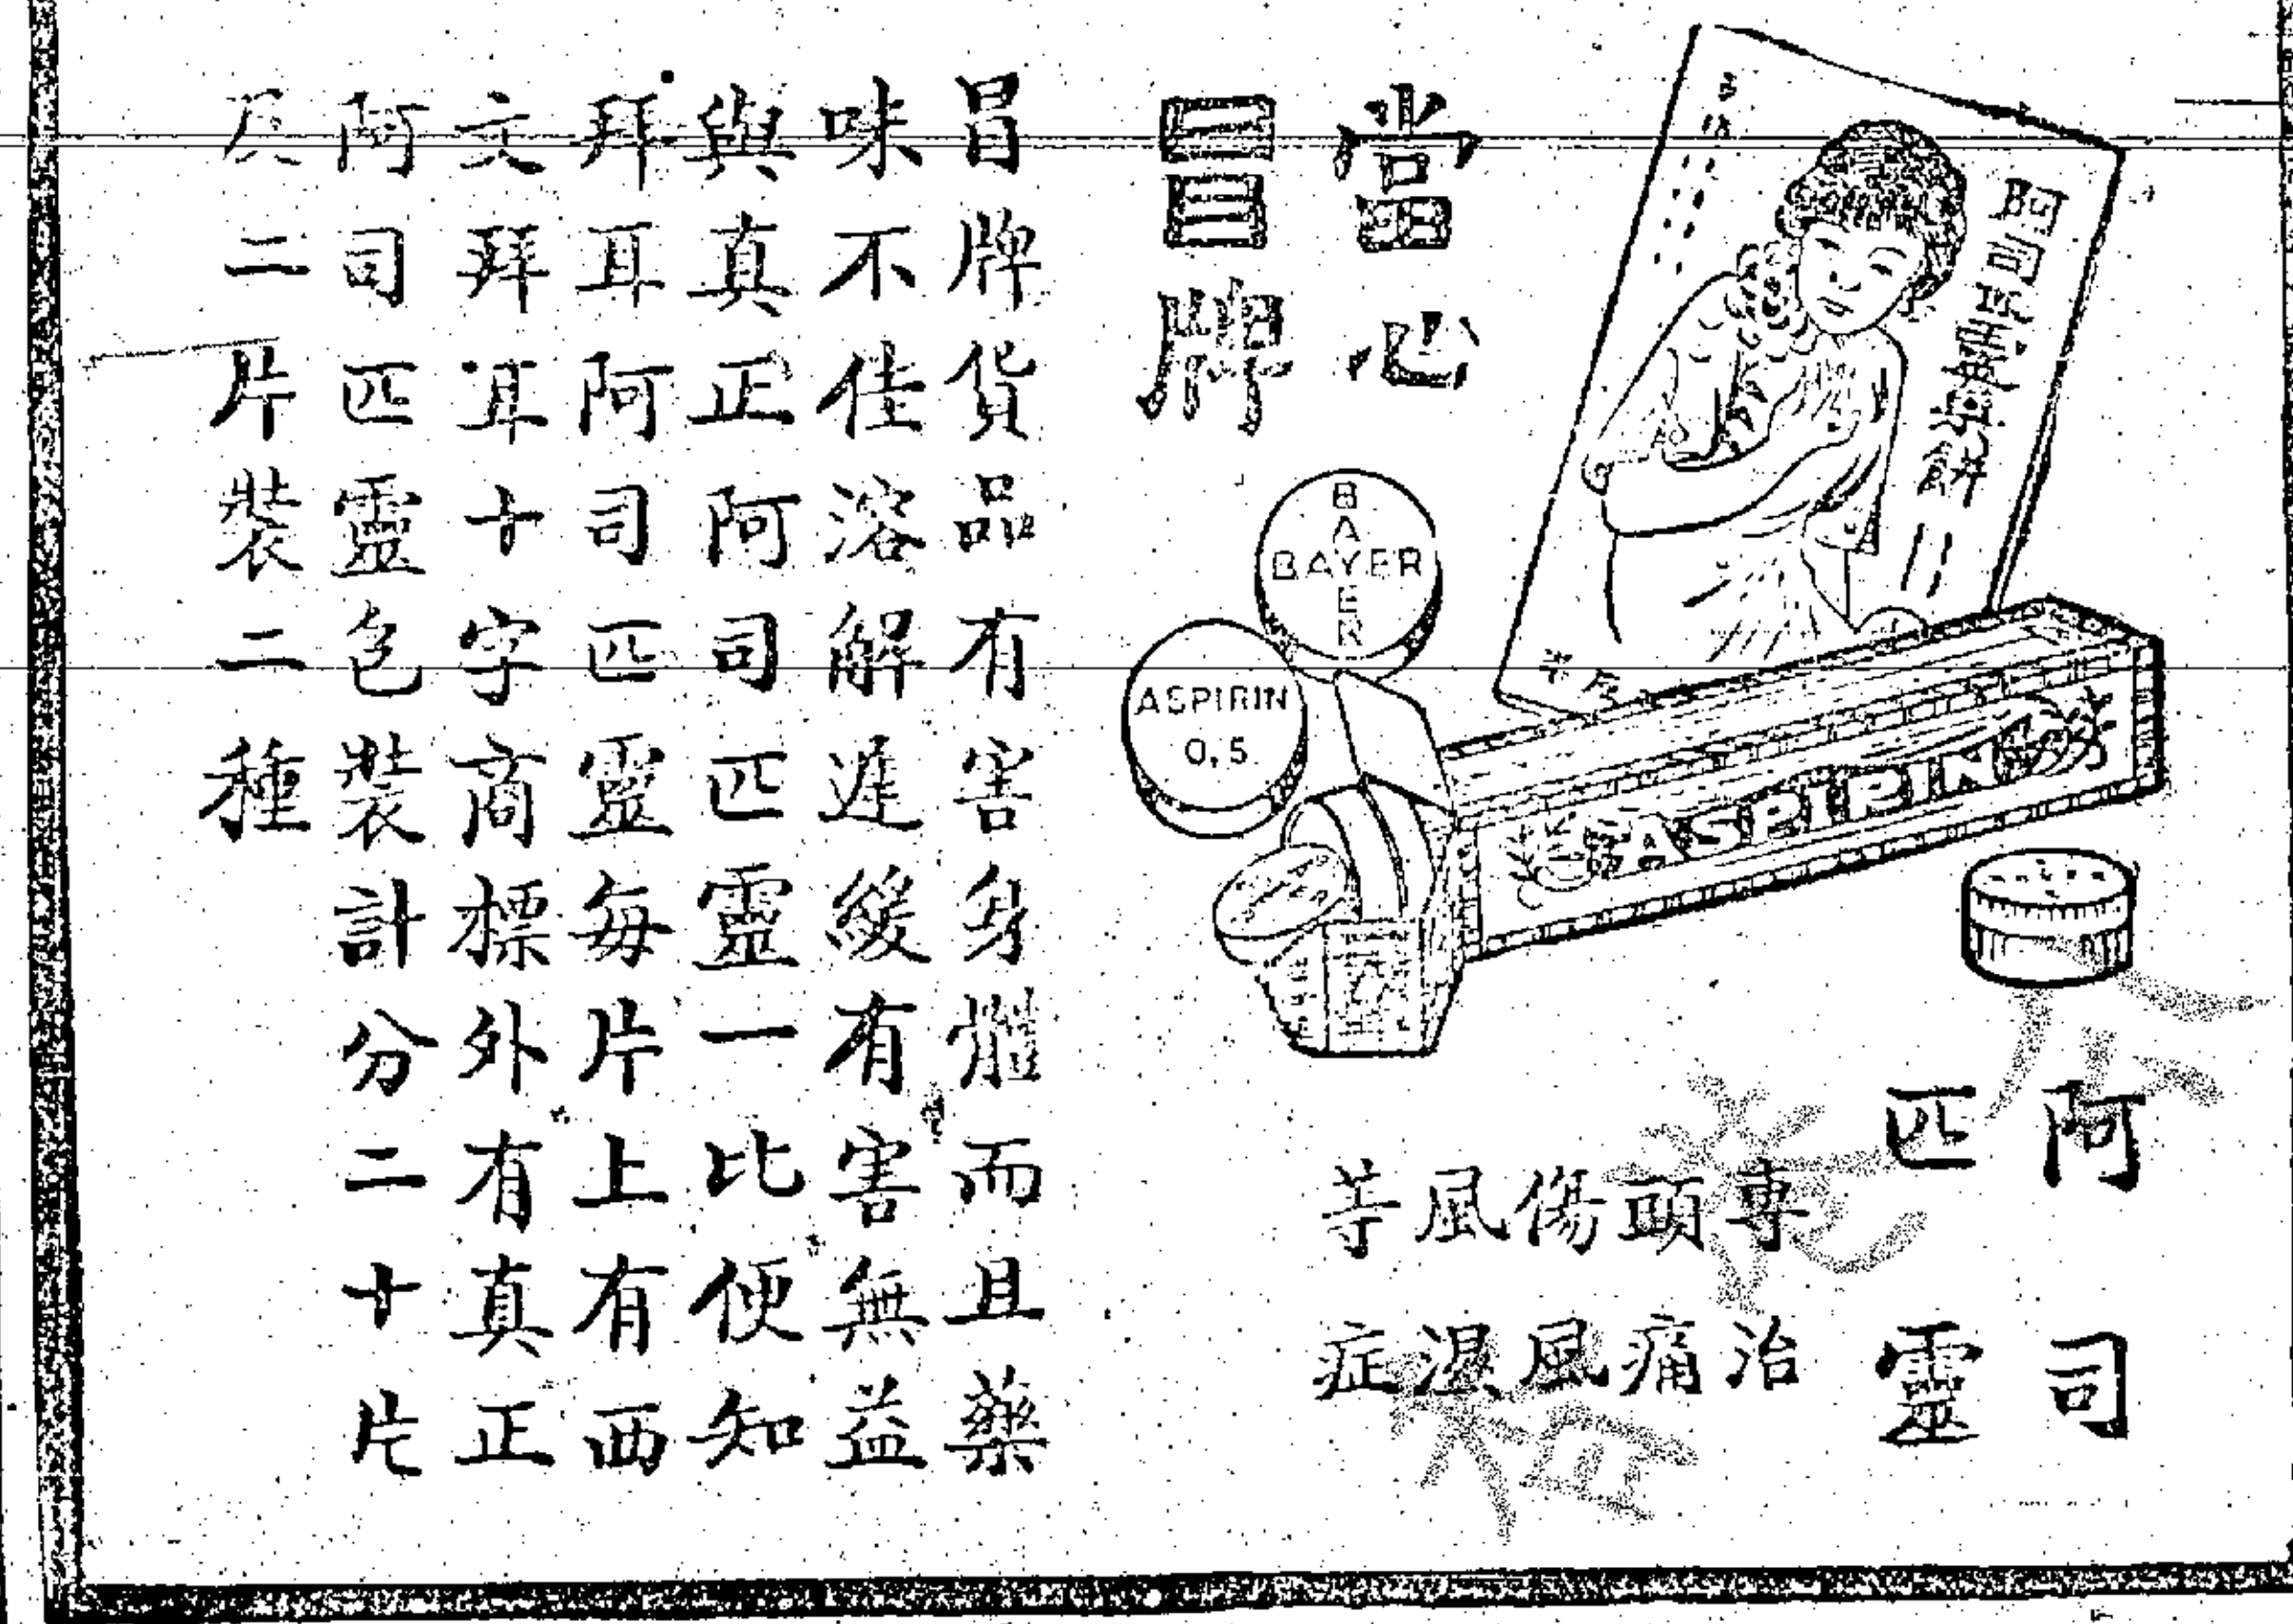 阿司匹靈藥餅
BAYER
BAYER
ASPIRIN
0,5
ASPIRIN
阿司
匹靈
專治
頭痛
傷風
風濕
等症
當心
冒牌
冒牌貨品有害身體而且藥
味不佳溶解遲緩有害無益
與真正阿司匹靈一比便知
拜耳阿司匹靈每片上有西
文拜耳十字商標外有真正
阿司匹靈包裝計分二十片
及二片裝二種